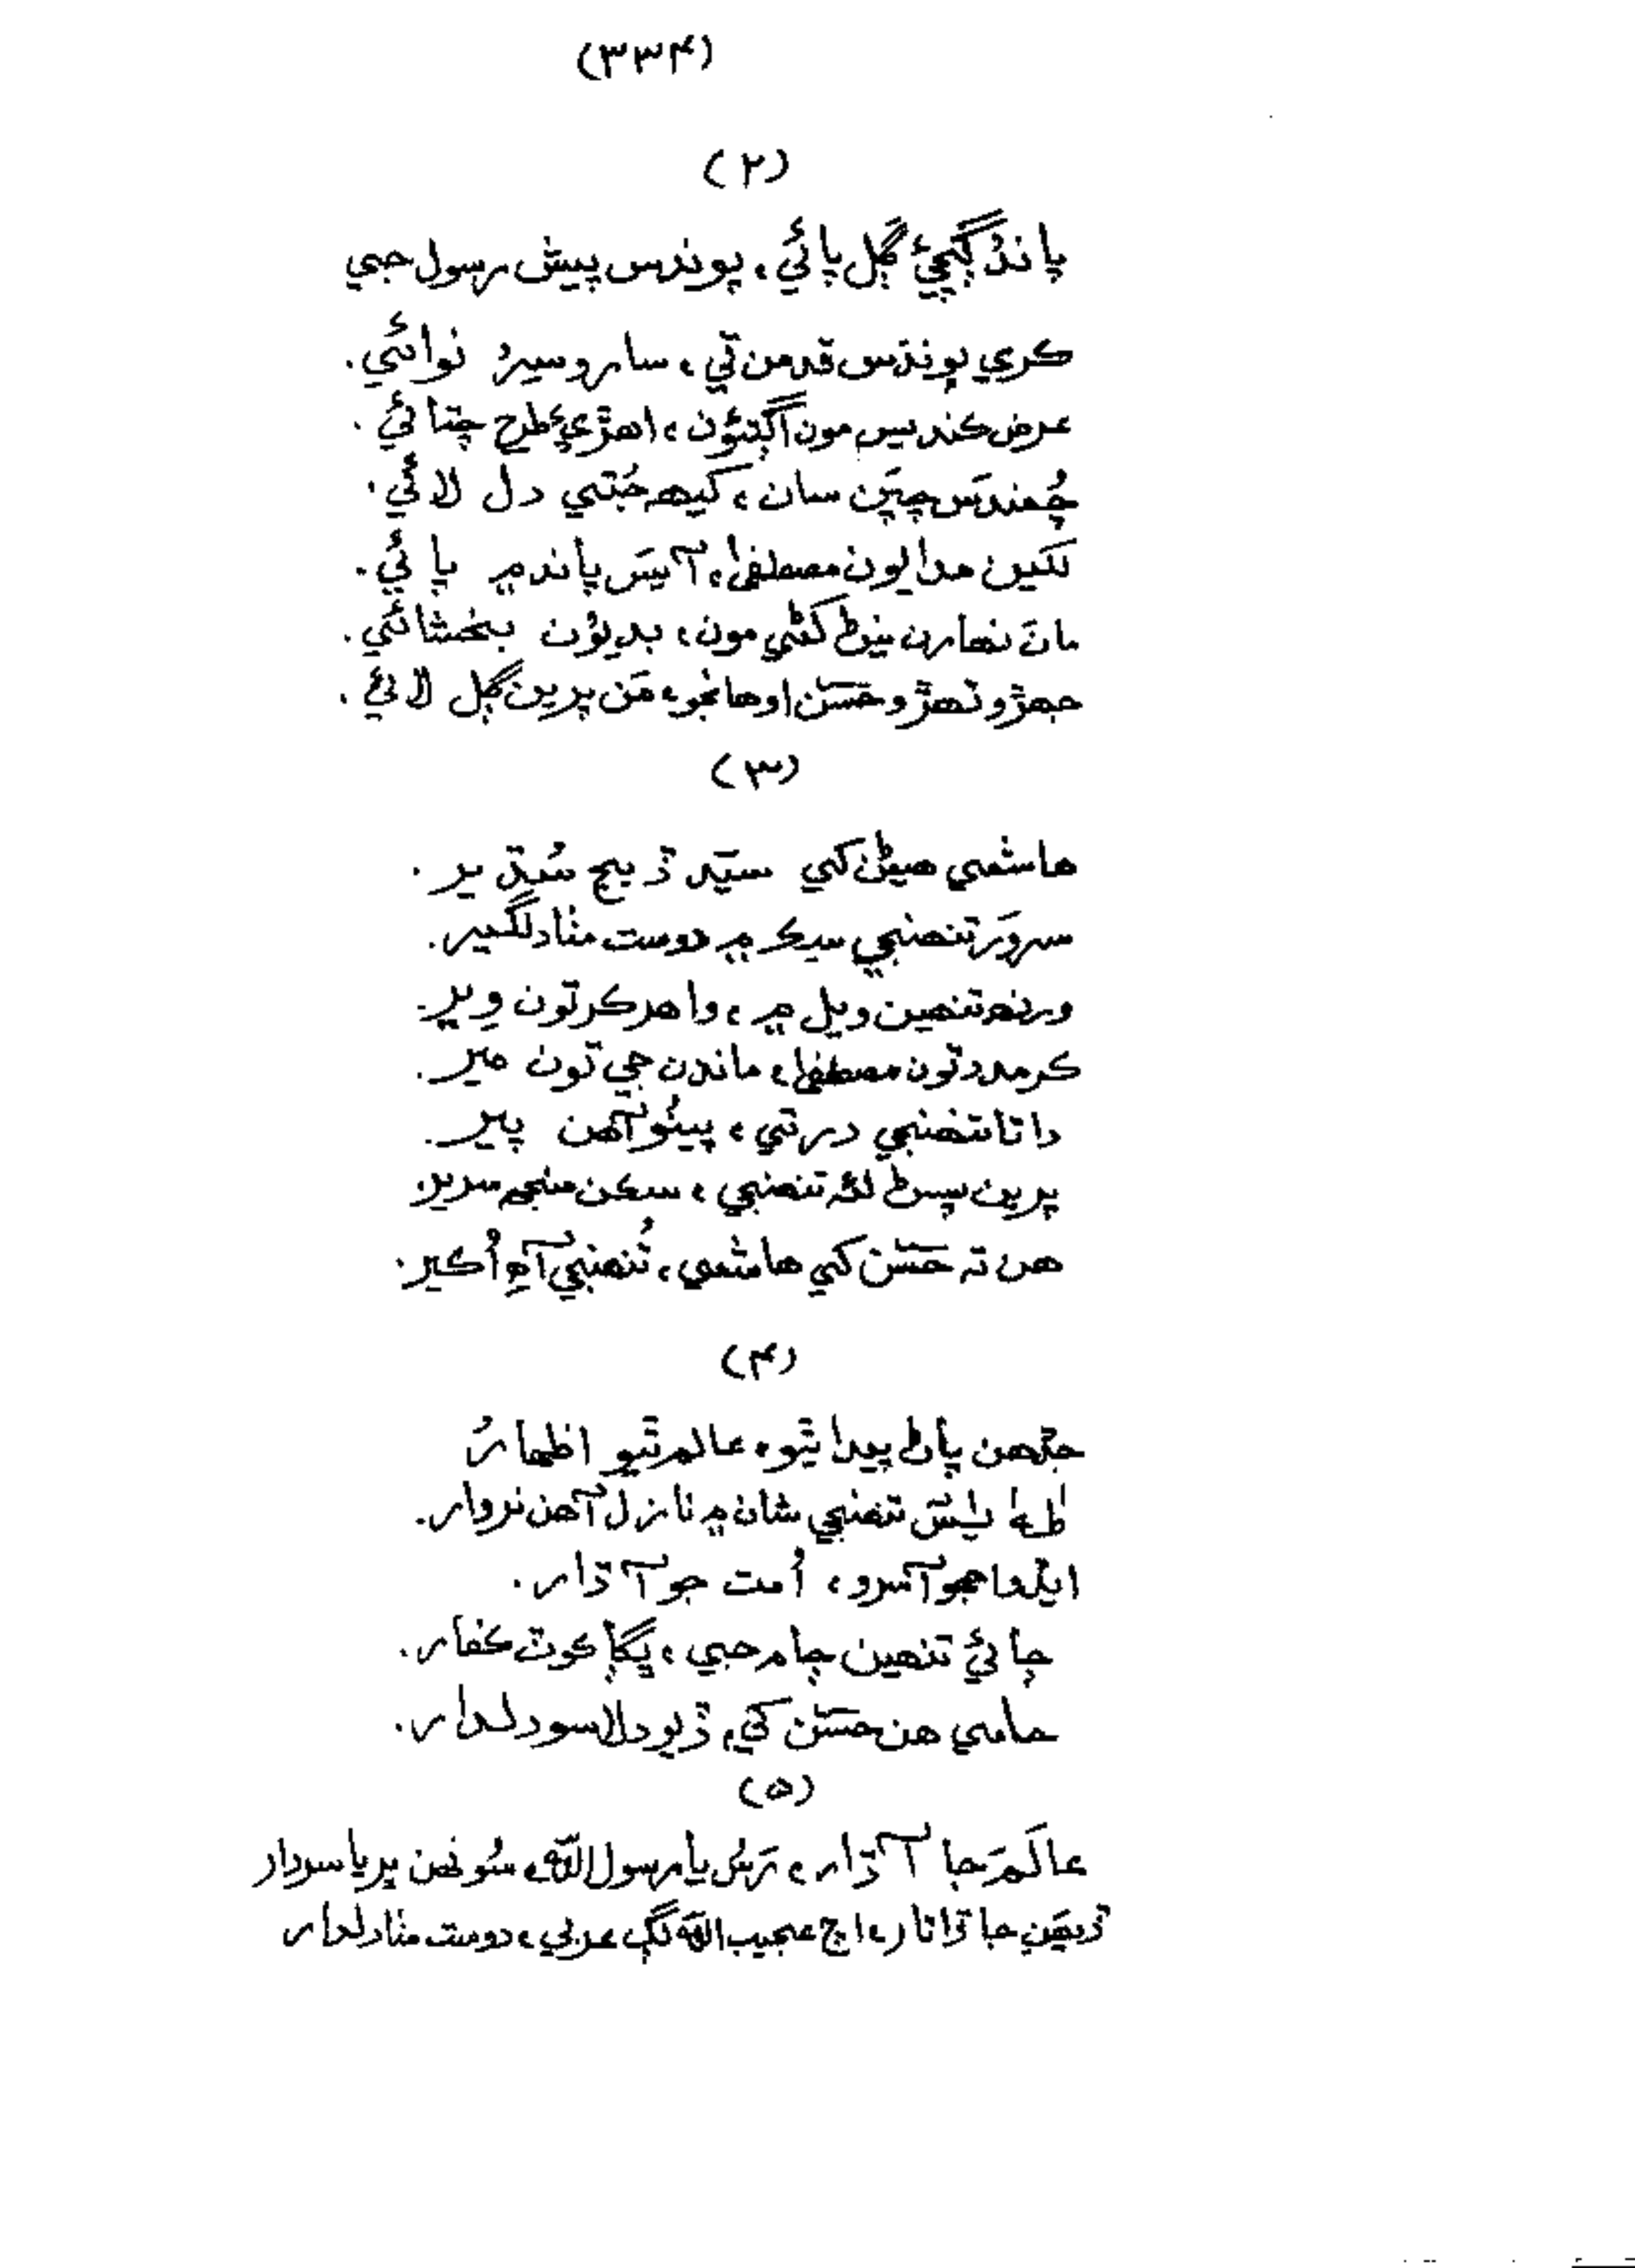 (۳۳۴)
(۲)
پاندُ ڳچيءَ ڳل پائي، پوندس پيش رسول جي
ڪري پوندس قدمن تي، سارو سيرُ نوائي.
عرض ڪنديس مون اڳيؤن، اهڙيءَ طرح چتائي.
چُمندسَ چپَن سان، کيهه جُتي دل لائي.
لکين مدايون مصطفيٰ، آيسَ پاند ۾ پائي.
مانَ نهارن نيڻ کڻي مون، بديؤن بخشائي.
جهڙو تهڙو حَسَن اوهانجو، مَن پرين ڳل لائي.
(۳)
هاشمي هيڻن کي سيّد ڏيج سُڌير.
سروَر تنهنجي سڪ ۾ دوست مٺا دلگير.
ورنهه تنهين ويل ۾، واهر ڪر تون وِير.
ڪر مدد تون مصطفيٰ، ماندن جي تون مير.
داتا تنهنجي در تي، پيئو آهن پير.
پرين پسڻ لئہ تنهنجي، سڪن منجهه سرير
هن تہ حَسَن کي هاشمي، تُنهنجي آهِ اُڪير.
(۴)
جڏهن پاڻ پيدا ٿيو، عالم ٿيو اظهارُ
طٰهٰ يٰسٓ تنهنجي شان ۾ نازل آهن نروار.
ايڏها جو آسرو، اُمت جو آڌار.
ڄائي تنهين ڄام جي، ڀڳا ڪوٽ ڪفار.
حامي هن حَسَن کي، ڏيو دلاسو دلدار.
(۵)
عالَمَ جا آڌار، رَسُ يا رسول اللّٰه، سُونهن ڀريا سردار
ڏيهَن جا ڏاتار، اڄ عجيب اللّٰه لڳ عربي، دوست مٺا دلدار